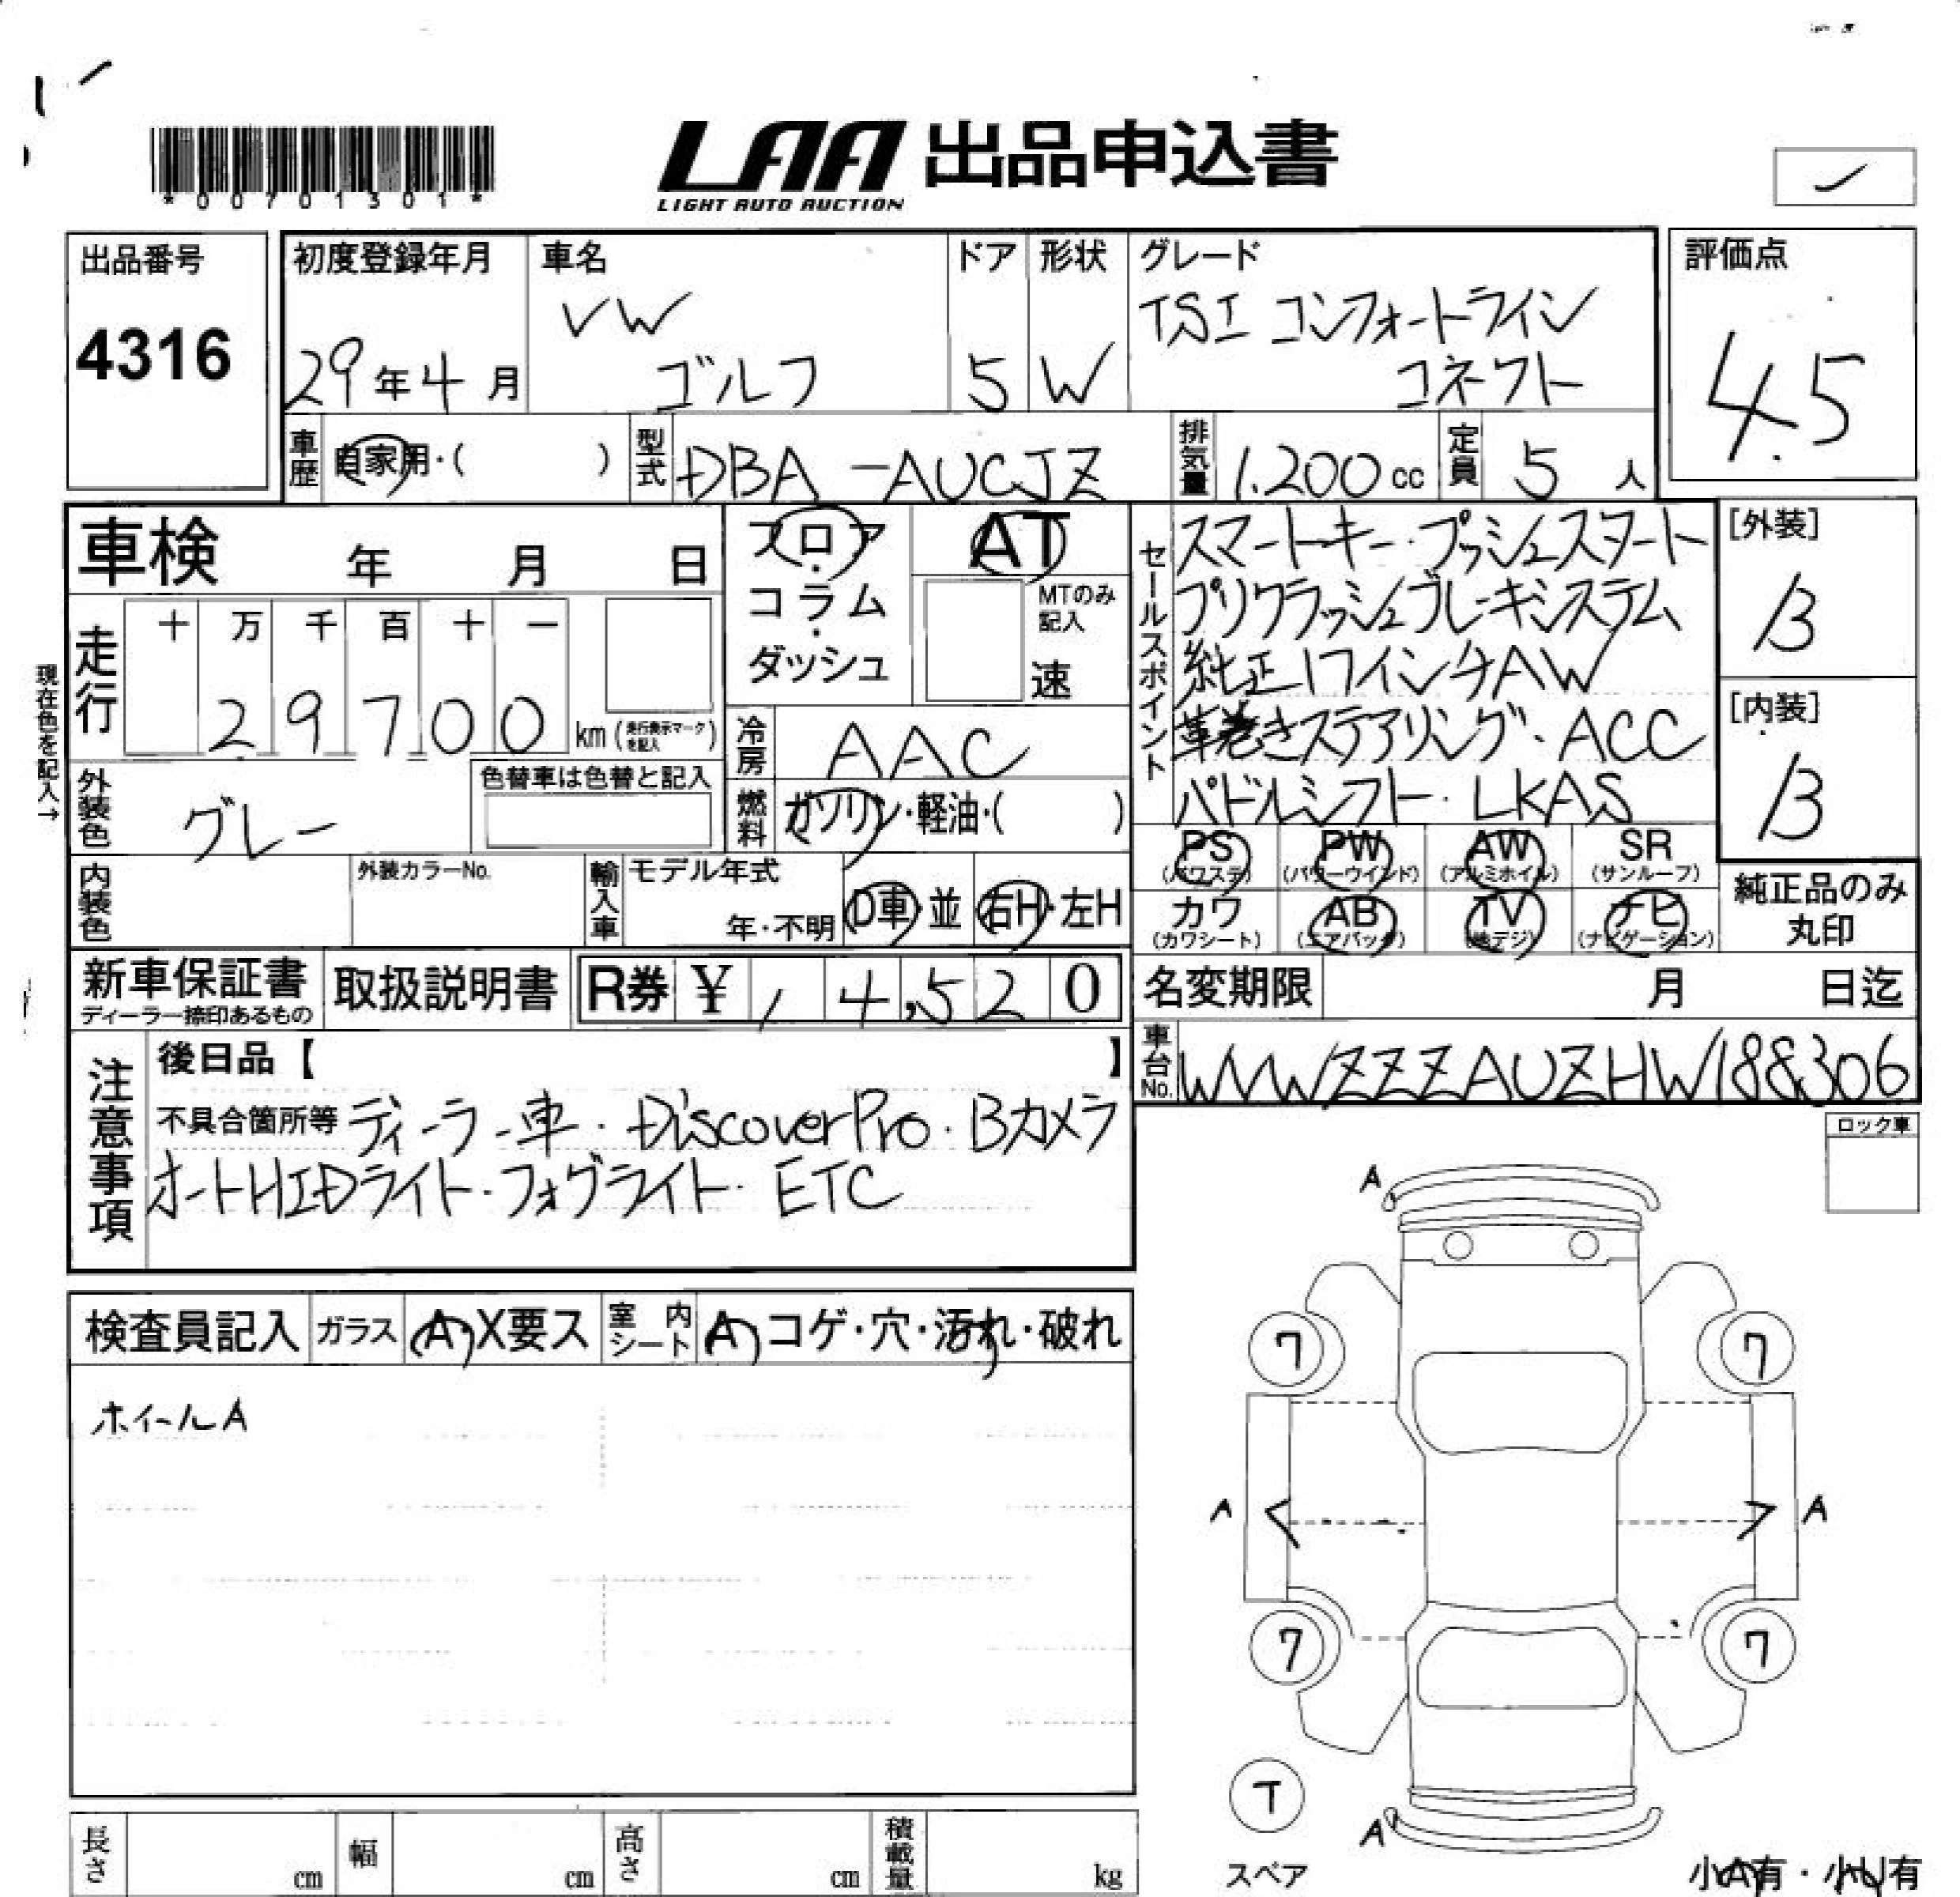 *00701301*
LAA 出品申込書
LIGHT AUTO AUCTION
出品番号
4316
初度登録年月
29年4月
車名
VW
ゴルフ
ドア
5
形状
W
グレード
TSI コンフォートライン
コネクト
評価点
4.5
車歴
自家用・( )
型式
DBA-AUCJZ
排気量
1.200cc
定員
5人
車検 年 月 日
フロア・コラム・ダッシュ
AT
MTのみ記入
速
セールスポイント
スマートキー・プッシュスタート
プリクラッシュブレーキシステム
純正17インチAW
革巻きステアリング・ACC
パドルシフト・LKAS
[外装]
B
[内装]
B
現在色を記入→
走行
十 万 千 百 十 一
29700 km(走行表示マークを記入)
冷房
AAC
外装色
グレー
色替車は色替と記入
燃料
ガソリン・軽油・( )
内装色
外装カラーNo.
輸入車
モデル年式
年・不明
D車・並
右H・左H
PS (パワステ)
PW (パワーウインド)
AW (アルミホイル)
SR (サンルーフ)
カワ (カワシート)
AB (エアバッグ)
TV (地デジ)
ナビ (ナビゲーション)
純正品のみ丸印
新車保証書
ディーラー捺印あるもの
取扱説明書
R券 ¥ , 4,520
名変期限 月 日迄
車台No.
WVWZZZAUZHW188306
注意事項
後日品【 】
不具合箇所等 ディーラー車・DiscoverPro・Bカメラ
オートHIDライト・フォグライト・ETC
ロック車
検査員記入
ガラス
A・X要ス
室内シート
A コゲ・穴・汚れ・破れ
ホイールA
A
7 7
A A
7 7
T
スペア
A
小A有・小U有
長さ cm
幅 cm
高さ cm
積載量 kg